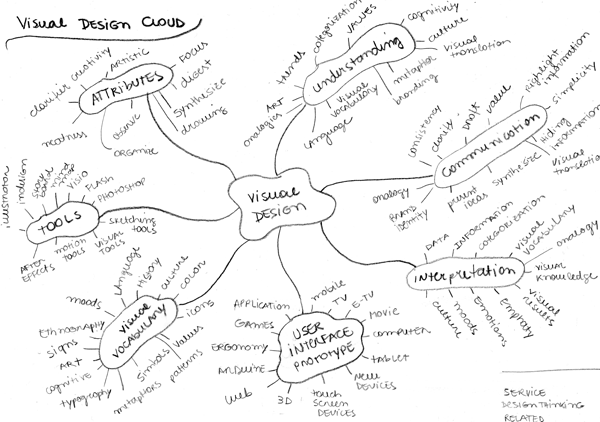 VISUAL DESIGN CLOUD
ATTRIBUTES
clarifies
creativity
ARTISTIC
FOCUS
digest
SYNTHESIZE
drawing
ORGANIZE
observe
neatness
understanding
trends
categorization
VALUES
cognitivity
culture
visual translation
metaphor
branding
visual vocabulary
language
analogies
ART
communication
consistency
clarity
value
Highlight information
simplicity
Hiding information
visual translation
synthesize
present ideas
BRAND IDENTITY
analogy
VISUAL DESIGN
TOOLS
illustrator
indesign
mind map
VISIO
FLASH
PHOTOSHOP
sketching TOOLS
VISUAL TOOLS
motion TOOLS
AFTER EFFECTS
interpretation
DATA
INFORMATION
categorization
visual vocabulary
analogy
visual knowledge
visual results
empathy
Emotions
moods
culture
VISUAL VOCABULARY
moods
Language
History
cultural
colour
icons
values
patterns
symbols
metaphors
typography
cognitive
ART
signs
ETHNOGRAPHY
USER INTERFACE PROTOTYPE
APPLICATION
mobile
TV
E-TV
MOVIE
computer
tablet
New DEVICES
touch screen DEVICES
3D
web
ARDUINE
ERGONOMY
GAMES
SERVICE
DESIGN THINKING
RELATED